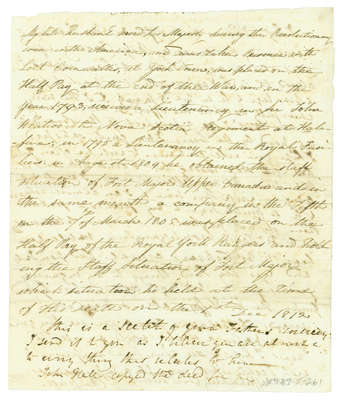 My late Husband served his Majesty during the Revolutionary
war with America, and was taken Prisoner with
Lord Cornwallis, at York Town, was placed on the
Half Pay, at the end of the War, and in the
Year 1793, received a Lieutenancy in Sir John
Nova Scotia Regiment at Hali-
fax, in 1795 a Lieutenancy in the Royal Fusi-
liers in August 1804 he obtained the staff
situation of Fort Major Upper Canada and in
the same month a in the
on the of March 180 was placed on the
Half Pay of the Royal York Rangers and hold-
ing the Staff Situation of Fort Major
which situation he held at the time
of his on the Dec 1812
This is a sketch of your Fathers
I send it to you as I know you are
to every thing that relates to him
John copyed the